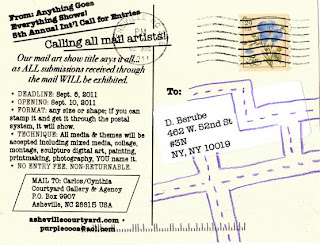 From: Anything Goes
Everything Shows!
5th Annual Int'l Call for Entries
Calling all mail artists!
Our mail art show title says it all...
as ALL submissions received through
the mail WILL be exhibited.
• DEADLINE: Sept. 6, 2011
• OPENING: Sept. 10, 2011
• FORMAT: any size or shape; if you can
stamp it and get it through the postal
system, it will show.
• TECHNIQUE: All media & themes will be
accepted including mixed media, collage,
montage, sculpture digital art, painting,
printmaking, photography, YOU name it.
• NO ENTRY FEE. NON-RETURNABLE.
MAIL TO: Carlos/Cynthia
Courtyard Gallery & Agency
P.O. Box 9907
Asheville, NC 28815 USA
ashevillecourtyard.com •
purplecocoa@aol.com
To:
D. Berube
462 W. 52nd St
#3N
NY, NY 10019